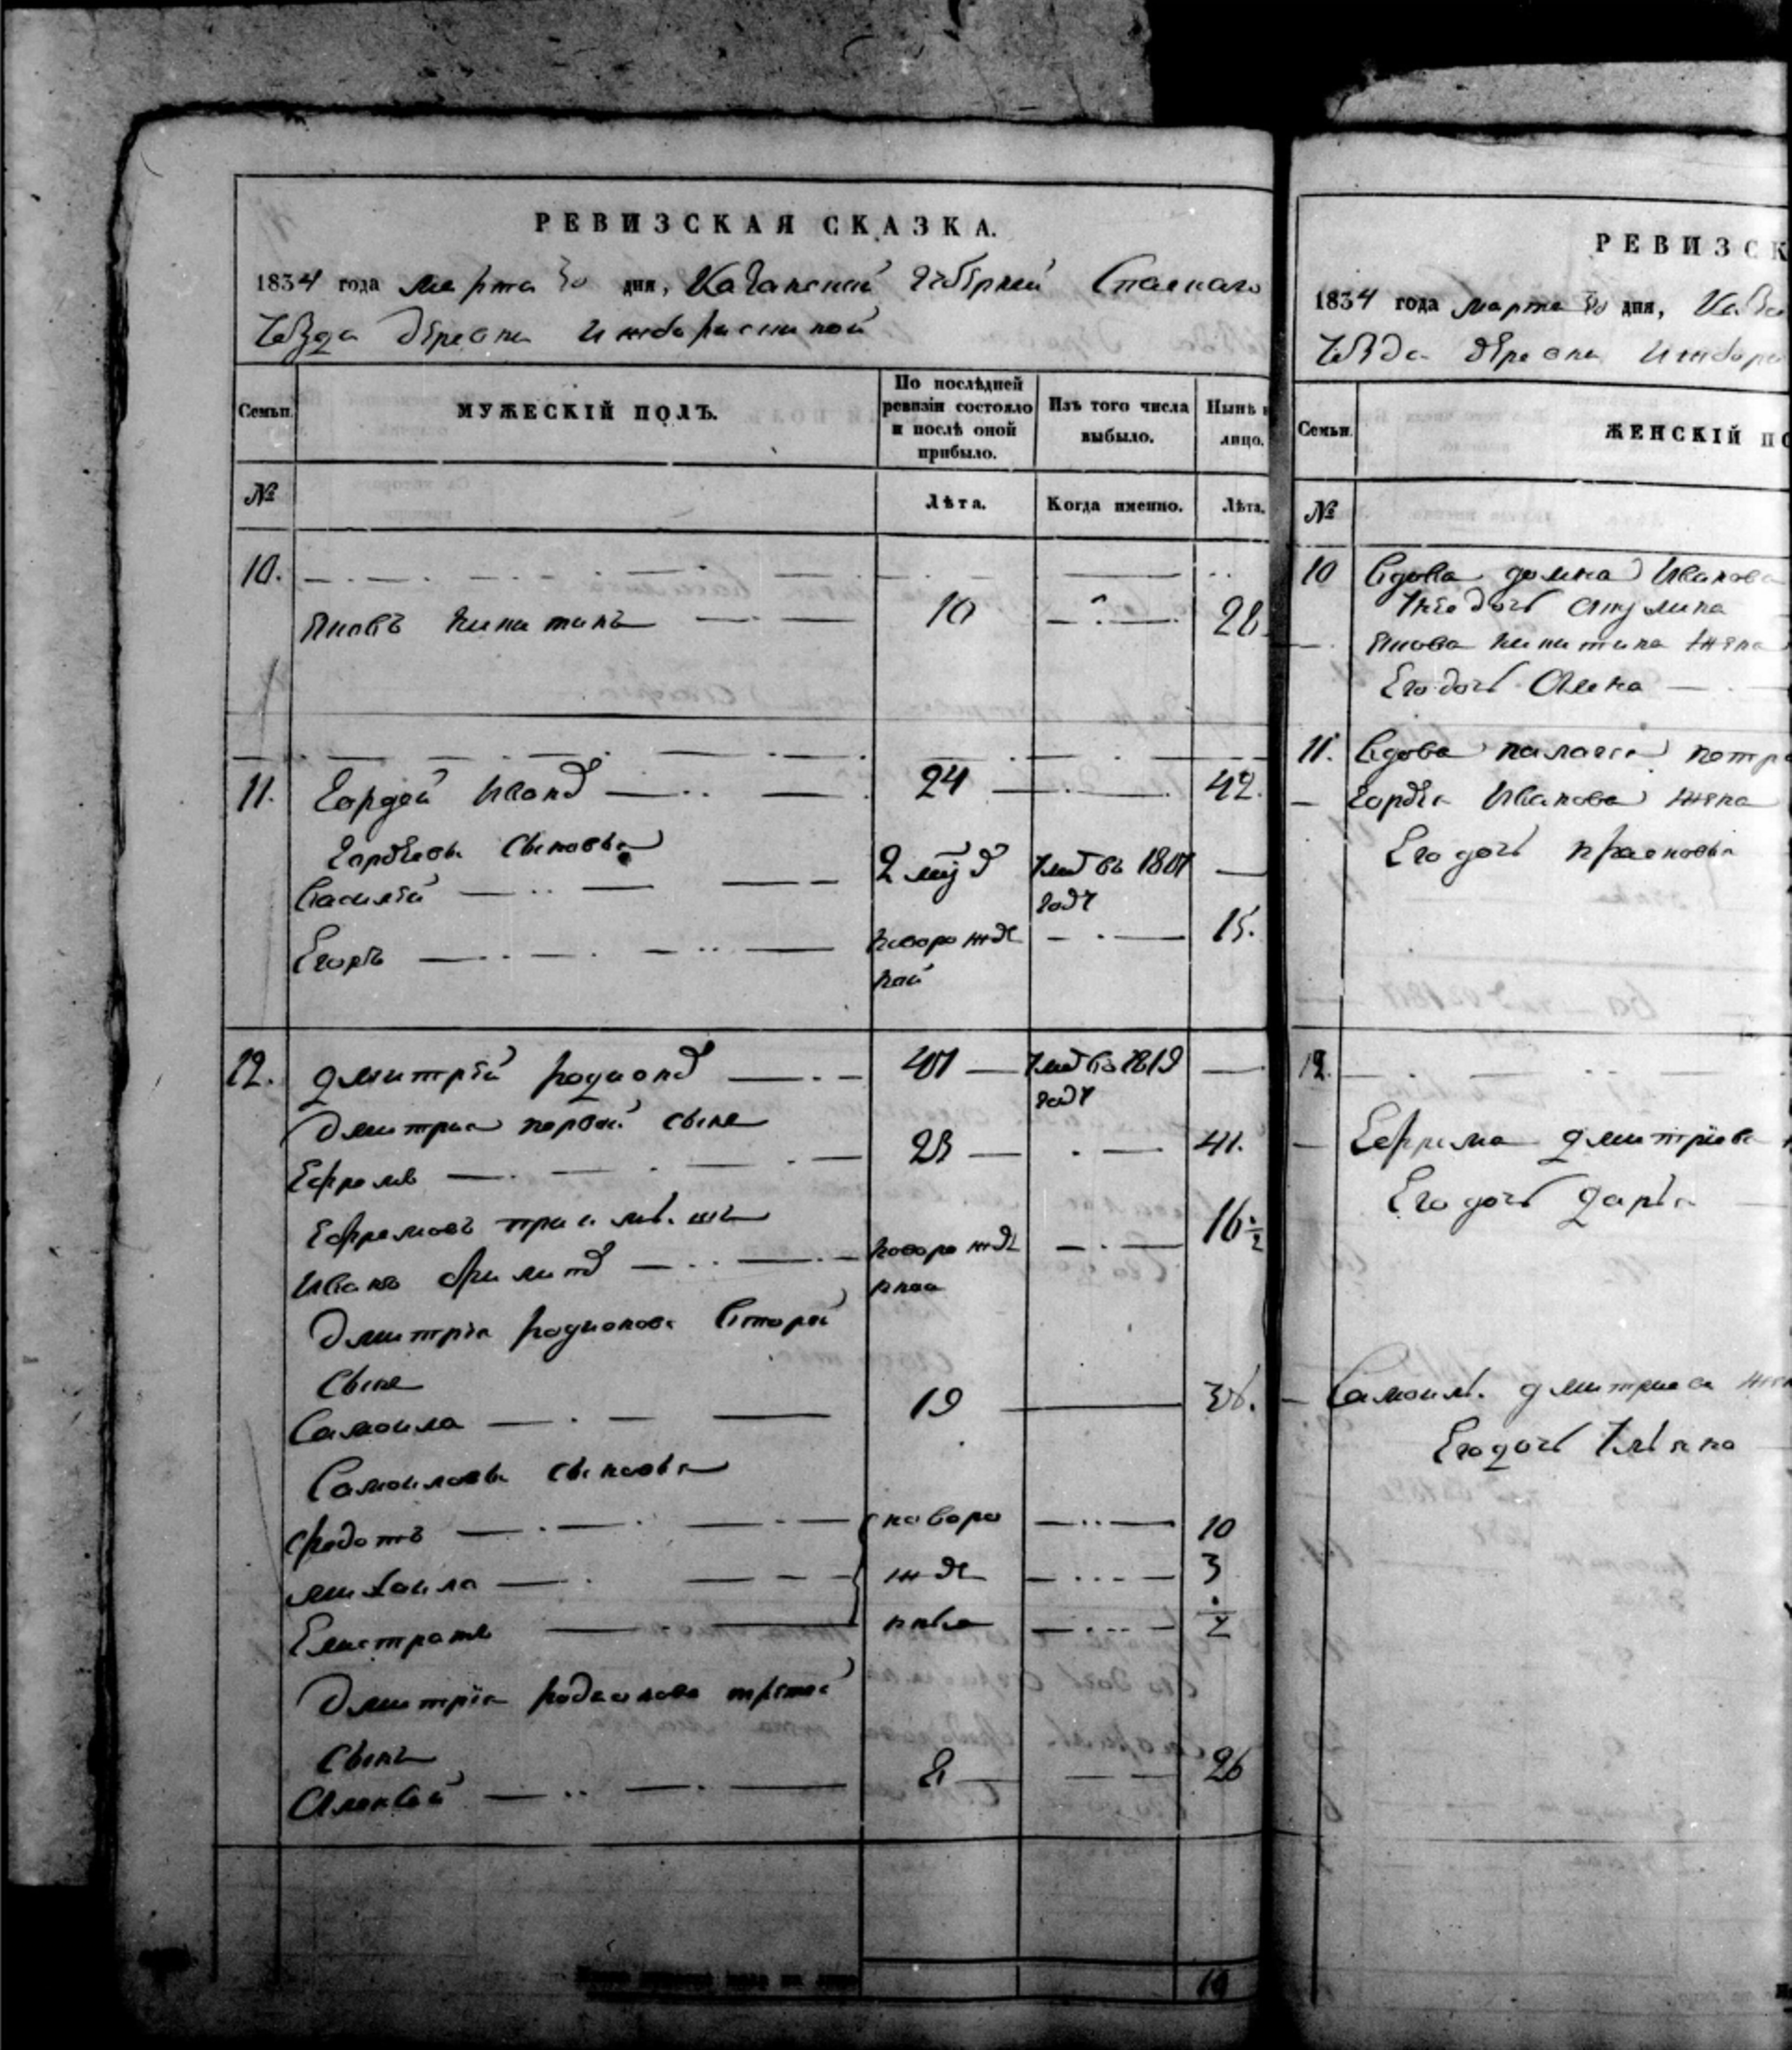 РЕВИЗСКАЯ СКАЗКА.
1834 года марта 30 дня, Казанской губерней Спаскаго
уезда деревни
Семьи. МУЖЕСКІЙ ПОЛЪ. По послѣдней ревизіи состояло и послѣ оной прибыло. Изъ того числа выбыло. Нынѣ лицо.
№ Лѣта. Когда именно. Лѣта.
10.
Яковъ Никитинъ 10 28
11. Гордей Иванд 24 42.
Гордѣевы сыновья
Василей 2 Умд въ году —
Егоръ новорожде 15.
ной
12. Дмитрѣй Родионд Умд въ 1819 —
году
Дмитриа первой сынъ
Ефремъ 23 41.
Ефремовъ
Иванъ новорожде 16.
Дмитрѣя Родионова Второй
сынъ
Самоила 19
Самоиловы сыновья
Федотъ новоро 10
Михаила жде 3
Елистратъ
Дмитрѣя третей
сынъ
Алексей 8 26
РЕВИЗСК
1834 года марта 30 дня, Каза
уезда деревни
Семьи. ЖЕНСКІЙ ПО
№
10 Вдова Домна Иванова
дочь Акулина
Якова Никитина жена
Его дочь Алена
11. Вдова Палагея Петр
Гордѣя Иванова жена
Его дочь Прасковья
12.
Ефрема Дмитрѣева
Его дочь Дарья
Самоилы Дмитриева жен
Его дочь Ульяна